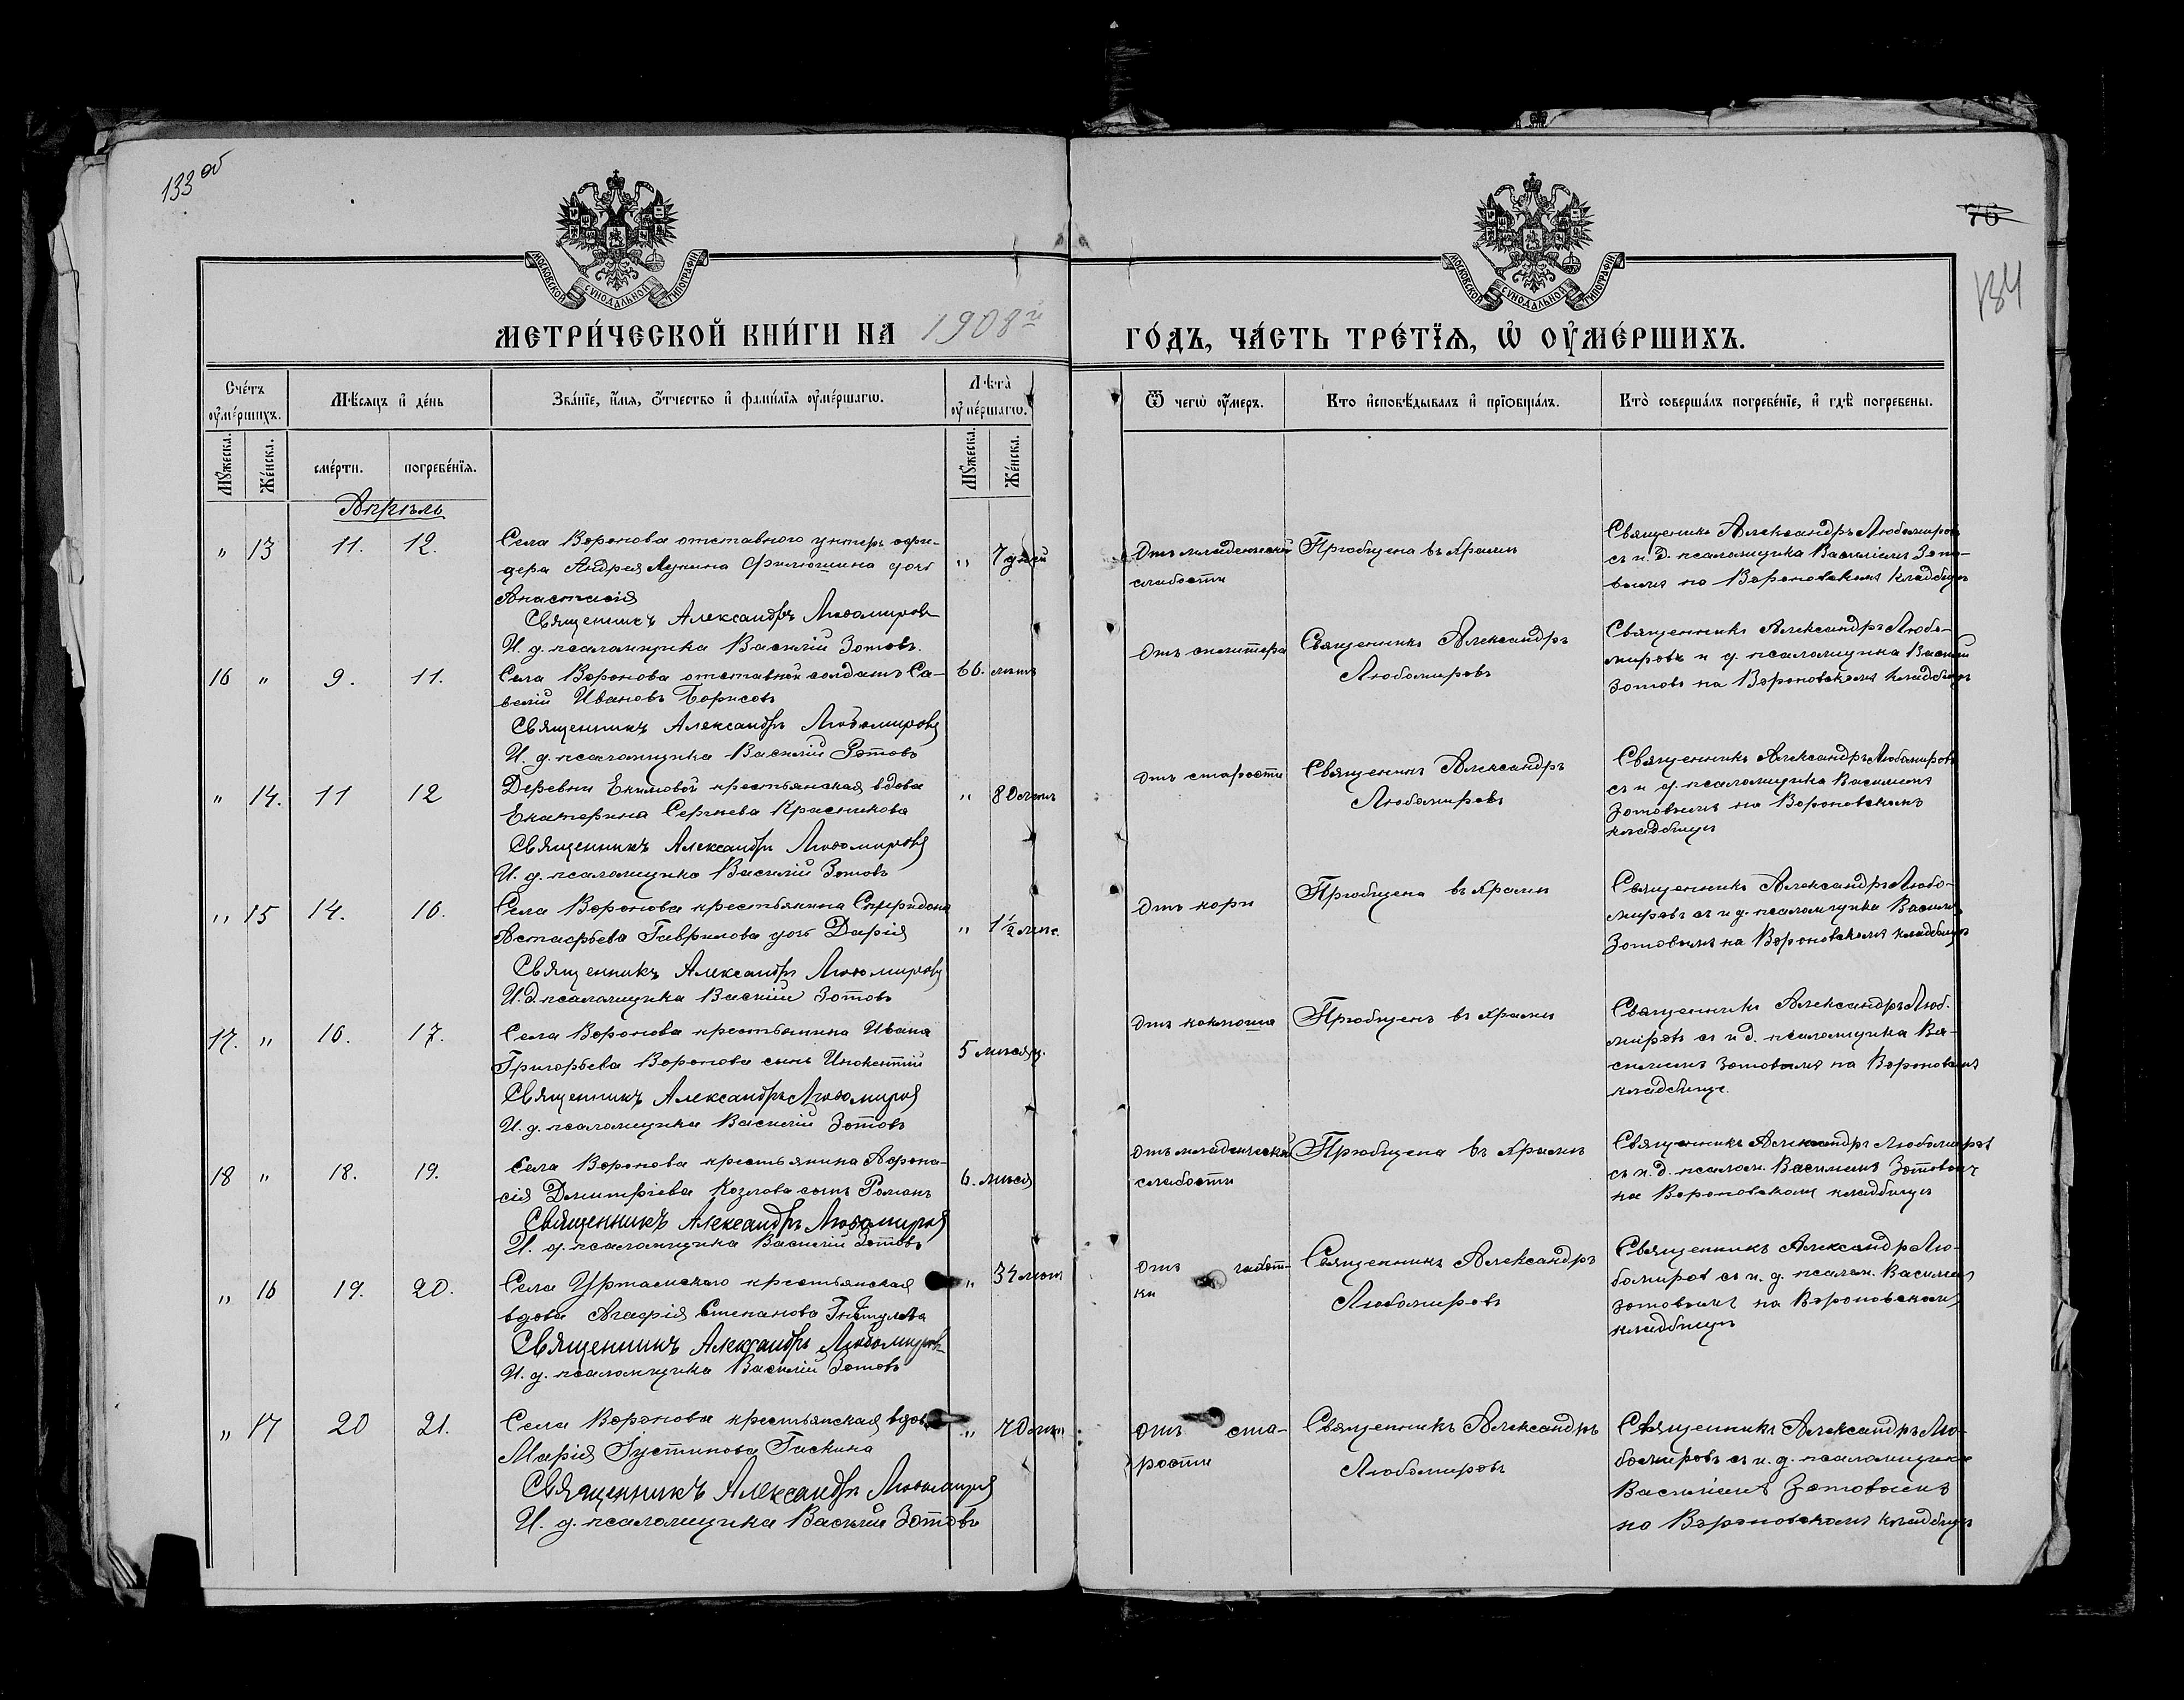 133 об
76
134
МОСКОВСКОЙ СѴНОДАЛЬНОЙ ТИПОГРАФІИ
МОСКОВСКОЙ СѴНОДАЛЬНОЙ ТИПОГРАФІИ
МЕТРИ́ЧЕСКОЙ КНИ́ГИ НА 1908 й
ГО́ДЪ, ЧА́СТЬ ТРЕ́ТЇѦ, Ѡ҆ ОУ҆МЕ́РШИХЪ.
Сче́тъ оу҆ме́ршихъ.
Мѣ́сяцъ и҆ де́нь
Зва́нїе, и҆́мя, ѻ҆́тчество и҆ фами́лїя оу҆ме́ршагѡ.
Лѣта̀ оу҆ме́ршагѡ.
Ѿ чегѡ̀ оу҆́меръ.
Кто̀ и҆сповѣ́дывалъ и҆ прїѻбща́лъ.
Кто̀ соверша́лъ погребе́нїе, и҆ гдѣ̀ погребены.
Мꙋ́жеска.
Же́нска.
сме́рти.
погребе́нїя.
Мꙋ́жеска.
Же́нска.
Апрѣль
" 13 11. 12. Села Воронова отставного унтеръ офи-
цера Андрея Лукина Филюшина дочь " 7 дней
Анастасія
Священникъ Александръ Любомировъ
И. д. псаломщика Василій Зотовъ.
Отъ младенческой
слабости
Пріобщена въ храмѣ
Священникъ Александръ Любомировъ
съ и. д. псаломщика Василіемъ Зото-
вымъ на Вороновскомъ кладбищѣ
16 " 9. 11. Села Воронова отставной солдатъ Са- 66. лѣтъ
велій Ивановъ Борисовъ
Священникъ Александръ Любомировъ
И. д. псаломщика Василій Зотовъ
Священникъ Александръ
Любомировъ
Священникъ Александръ Любо-
мировъ и д. псаломщика Василій
Зотовъ на Вороновскомъ кладбищѣ
" 14. 11 12 Деревни Екимовой крестьянская вдова " 80 лѣтъ
Екатерина Сергѣева Красникова
Священникъ Александръ Любомировъ
И. д. псаломщика Василій Зотовъ
Отъ старости
Священникъ Александръ
Любомировъ
Священникъ Александръ Любомировъ
съ и д. псаломщика Василіемъ
Зотовымъ на Вороновскомъ
кладбищѣ
" 15 14. 16. Села Воронова крестьянина Спиридона
Астафьева Гаврилова дочь Дарія " 1½ мѣс.
Священникъ Александръ Любомировъ
И. д. псаломщика Василій Зотовъ
Отъ кори
Пріобщена въ храмѣ
Священникъ Александръ Любо-
мировъ съ и д. псаломщика Василіемъ
Зотовымъ на Вороновскомъ кладбищѣ
17. " 16. 17. Села Воронова крестьянина Ивана
Григорьева Воронова сынъ Инокентій 5 мѣсяц.
Священникъ Александръ Любомировъ
И. д. псаломщика Василій Зотовъ
Отъ коклюша
Пріобщенъ въ храмѣ
Священникъ Александръ Люб.
мировъ съ и д. псаломщика Ва-
силіемъ Зотовымъ на Вороновскомъ
кладбище.
18 " 18. 19. Села Воронова крестьянина Афона-
сія Димитріева Козлова сынъ Романъ 6. мѣся
Священникъ Александръ Любомировъ
И. д. псаломщика Василій Зотовъ
Отъ младенческой
слабости
Пріобщена въ храмѣ
Священникъ Александръ Любомировъ
съ и. д. псалом. Василіемъ Зотовымъ
на Вороновскомъ кладбищѣ
" 16 19. 20. Села Уртамскаго крестьянская " 34 лѣтъ
вдова Агафія Степанова
Священникъ Александръ Любомировъ
И. д. псаломщика Василій Зотовъ
Отъ чахот-
ки
Священникъ Александръ
Любомировъ
Священникъ Александръ Лю-
бомиров съ и. д. псалом. Василіемъ
Зотовымъ на Вороновскомъ
кладбищѣ
" 17 20 21. Села Воронова крестьянская вдова " 70 лѣтъ
Марія Іустинова Гаскина
Священникъ Александръ Любомировъ
И. д. псаломщика Василій Зотовъ
Отъ ста-
рости
Священникъ Александръ
Любомировъ
Священникъ Александръ Лю-
бомировъ съ и. д. псаломщика
Василіемъ Зотовымъ
на Вороновскомъ кладбищѣ